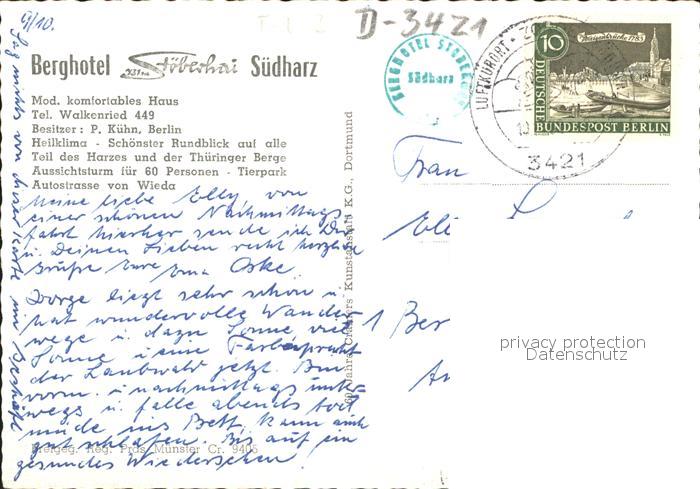 9/10.
D-3421
Berghotel Stöberhai Südharz
731 m
Mod. komfortables Haus
Tel. Walkenried 449
Besitzer: P. Kühn, Berlin
Heilklima - Schönster Rundblick auf alle
Teil des Harzes und der Thüringer Berge
Aussichtsturm für 60 Personen - Tierpark
Autostrasse von Wieda
Meine liebe Elly, von
einer schönen Nachmittags
fahrt hierher sende ich Dir
u. Deinen Lieben recht herzliche
Grüße Eure Erna Oske.
Zorge liegt sehr schön u.
hat wundervolle Wander
wege u. dazu Sonne viel
Sonne u. eine Farbenpracht
der Laubwald jetzt. Bin
vorm. u. nachmittags unter-
wegs u. falle abends tod
müde ins Bett, kann auch
gut schlafen. Bis auf ein
gesundes Wiedersehen.
Sag nichts von dieser Karte im Geschäft
Freigeg. Reg. Präs. Münster Cr. 9405
Jahre Cramers Kunstanstalt K.G., Dortmund
BERGHOTEL STÖBERHAI
Südharz
LUFTKURORT
3421
10
1783
DEUTSCHE
BUNDESPOST BERLIN
Frau
Eli
1 Ber
privacy protection
Datenschutz